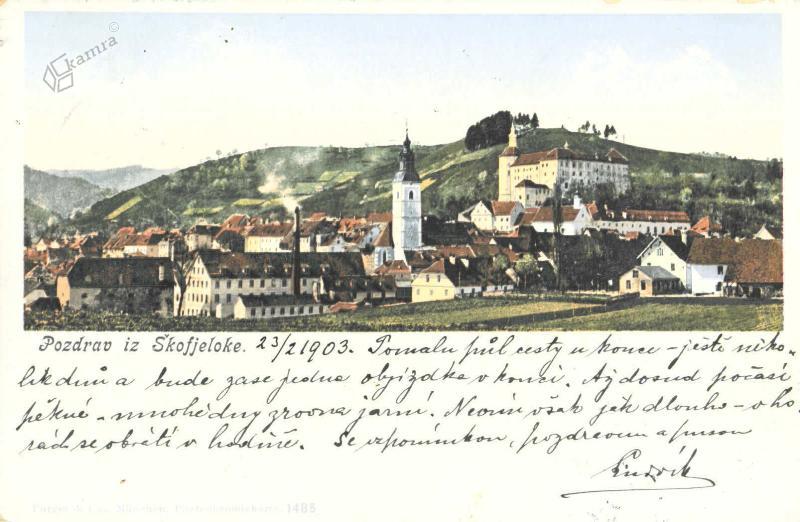 kamra ©
Pozdrav iz Škofjeloke. 23/2 1903. Pomalu půl cesty u konce – ještě něko-
lik dnů a bude zase jedna objížďka v konci. Až dosud počasí
pěkné – mnohé dny zrovna jarní. Nevím však jak dlouho – v ho-
rách se obrátí v hodině. Se vzpomínkou, pozdravem a pusou
Ludvík
Purger & Co., München, Photochromiekarte. 1485